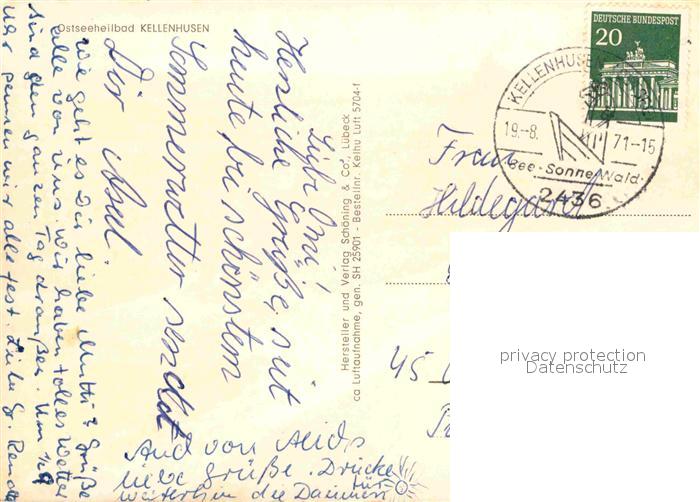 Ostseeheilbad KELLENHUSEN
DEUTSCHE BUNDESPOST
20
KELLENHUSEN
19.-8. 71-15
See-Sonne-Wald
2436
Liebe Omi!
Herzliche Grüße, seit
heute bei schönstem
Sommerwetter sendet
Dir
Wie geht es Dir liebe Mutti? Grüße
alle von uns. Wir haben tolles Wetter
sind den ganzen Tag draußen. Um
pennen wir alle fest. Liebe Gr. Renate
Und von
liebe Grüße. Drücke
weiterhin die Daumen für
Hersteller und Verlag Schöning & Co., Lübeck
ca Luftaufnahme, gen. SH 25901 - Bestellnr. Kelhu Luft 5704-f
Frau
Hildegard
45
privacy protection
Datenschutz